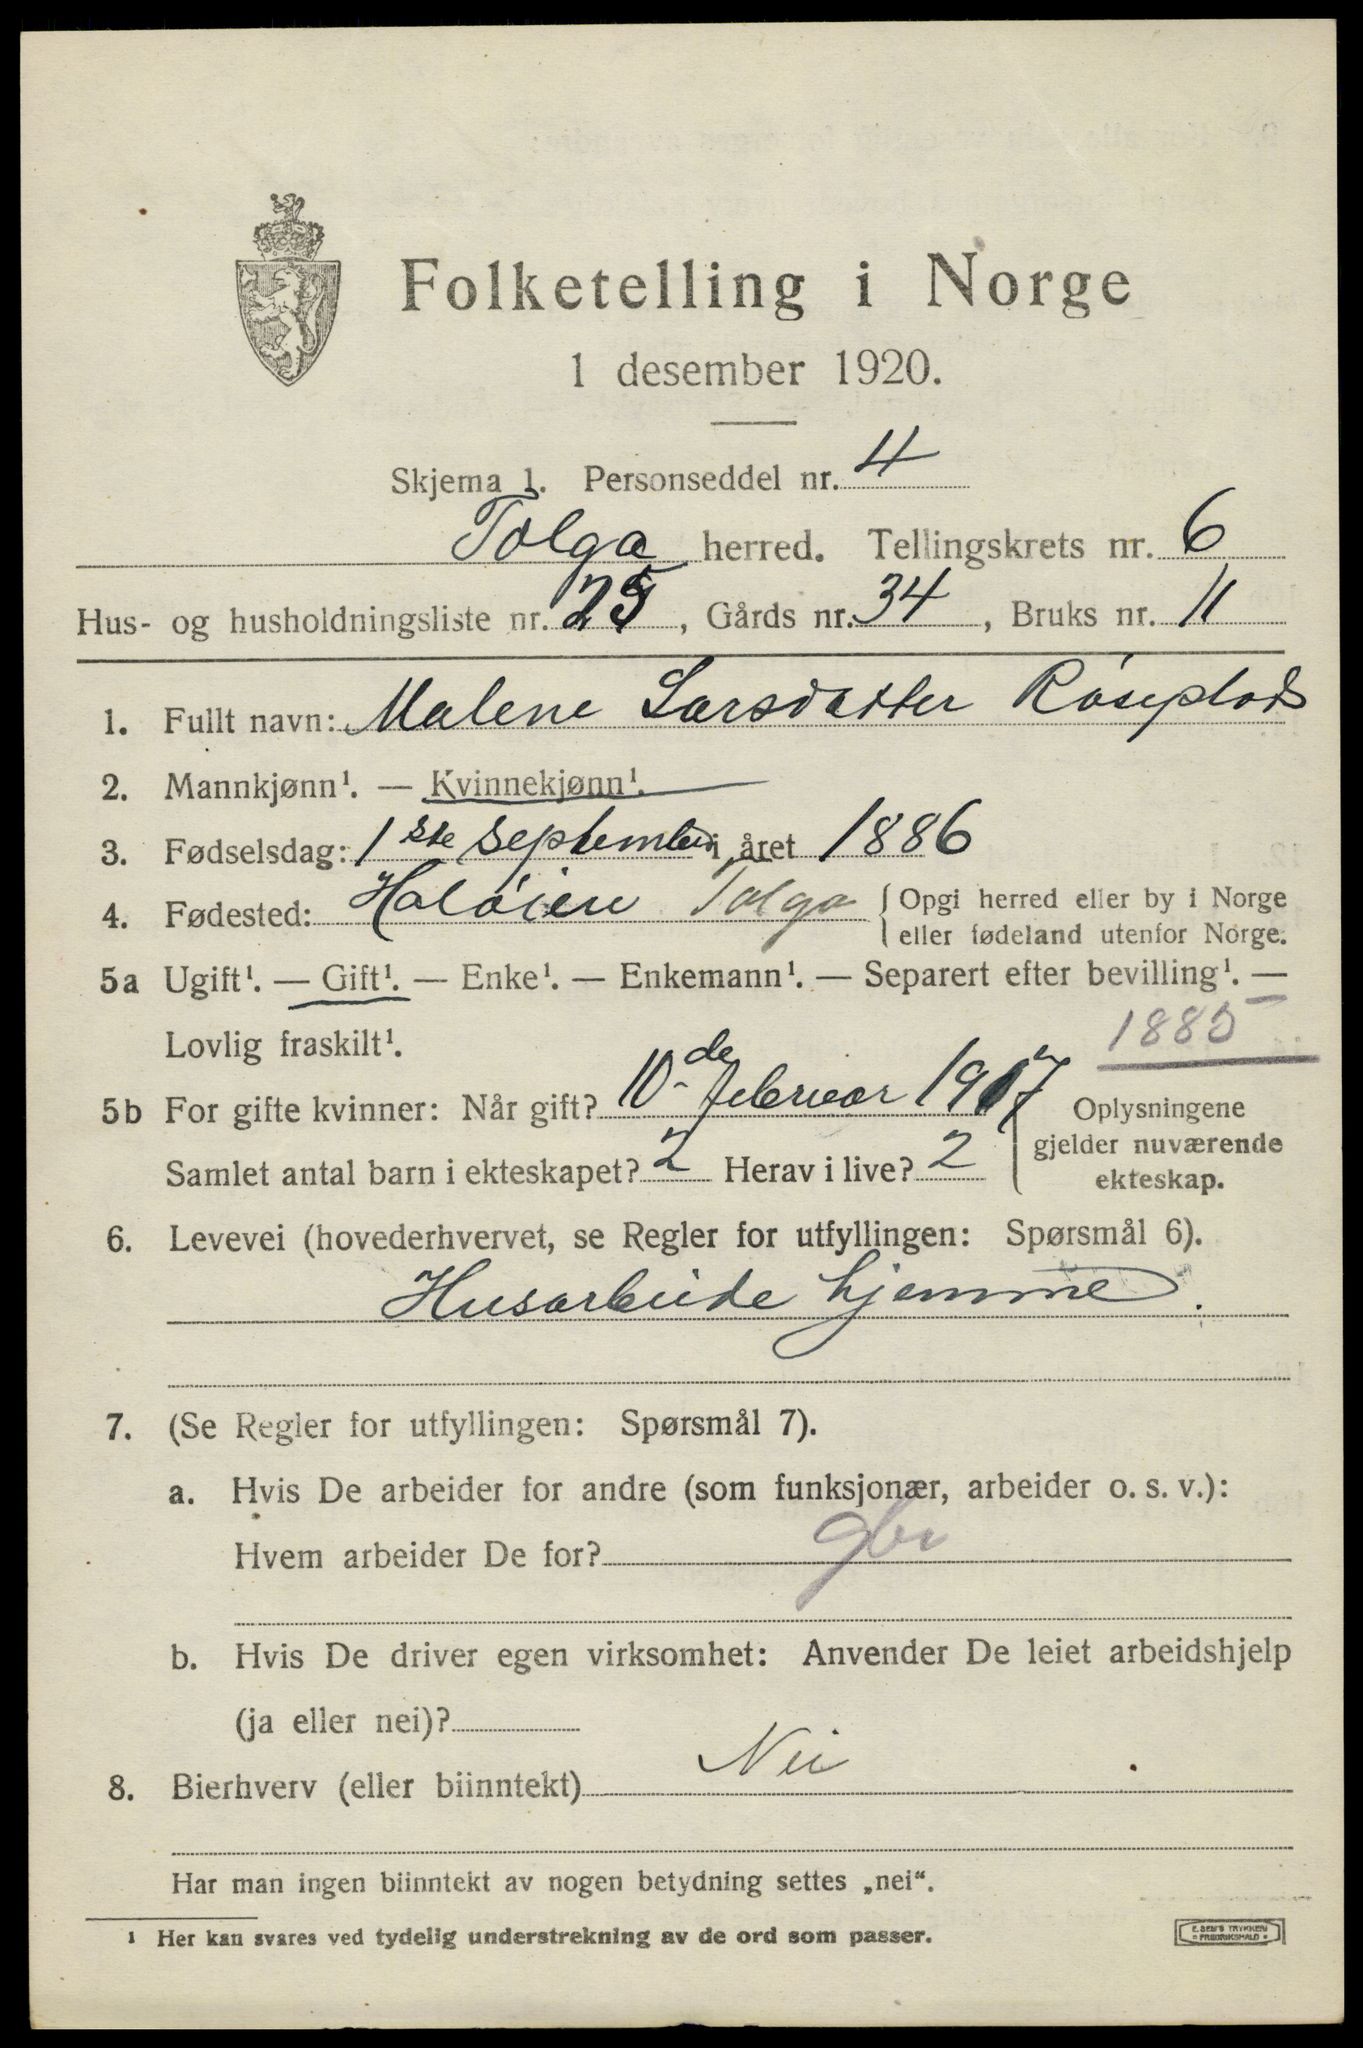 Folketelling i Norge
1 desember 1920.
Skjema 1. Personseddel nr. 4
Tolga herred. Tellingskrets nr. 6
Hus- og husholdningsliste nr. 25, Gårds nr. 34, Bruks nr. 11
1. Fullt navn: Malene Larsdatter
2. Mannkjønn¹. — Kvinnekjønn¹.
3. Fødselsdag: 1ste september i året 1886
4. Fødested: Holøien Tolga { Opgi herred eller by i Norge
eller fødeland utenfor Norge.
5a Ugift¹. — Gift¹. — Enke¹. — Enkemann¹. — Separert efter bevilling¹. —
Lovlig fraskilt¹. 1885
5b For gifte kvinner: Når gift? 10de februar 1917
Samlet antal barn i ekteskapet? 2 Herav i live? 2
Oplysningene
gjelder nuværende
ekteskap.
6. Levevei (hovederhvervet, se Regler for utfyllingen: Spørsmål 6).
Husarbeide hjemme.
7. (Se Regler for utfyllingen: Spørsmål 7).
a. Hvis De arbeider for andre (som funksjonær, arbeider o. s. v.):
Hvem arbeider De for? gbr
b. Hvis De driver egen virksomhet: Anvender De leiet arbeidshjelp
(ja eller nei)?
8. Bierhverv (eller biinntekt) Nei
Har man ingen biinntekt av nogen betydning settes „nei“.
¹ Her kan svares ved tydelig understrekning av de ord som passer.
E. SEM'S TRYKKERI
FREDRIKSHALD